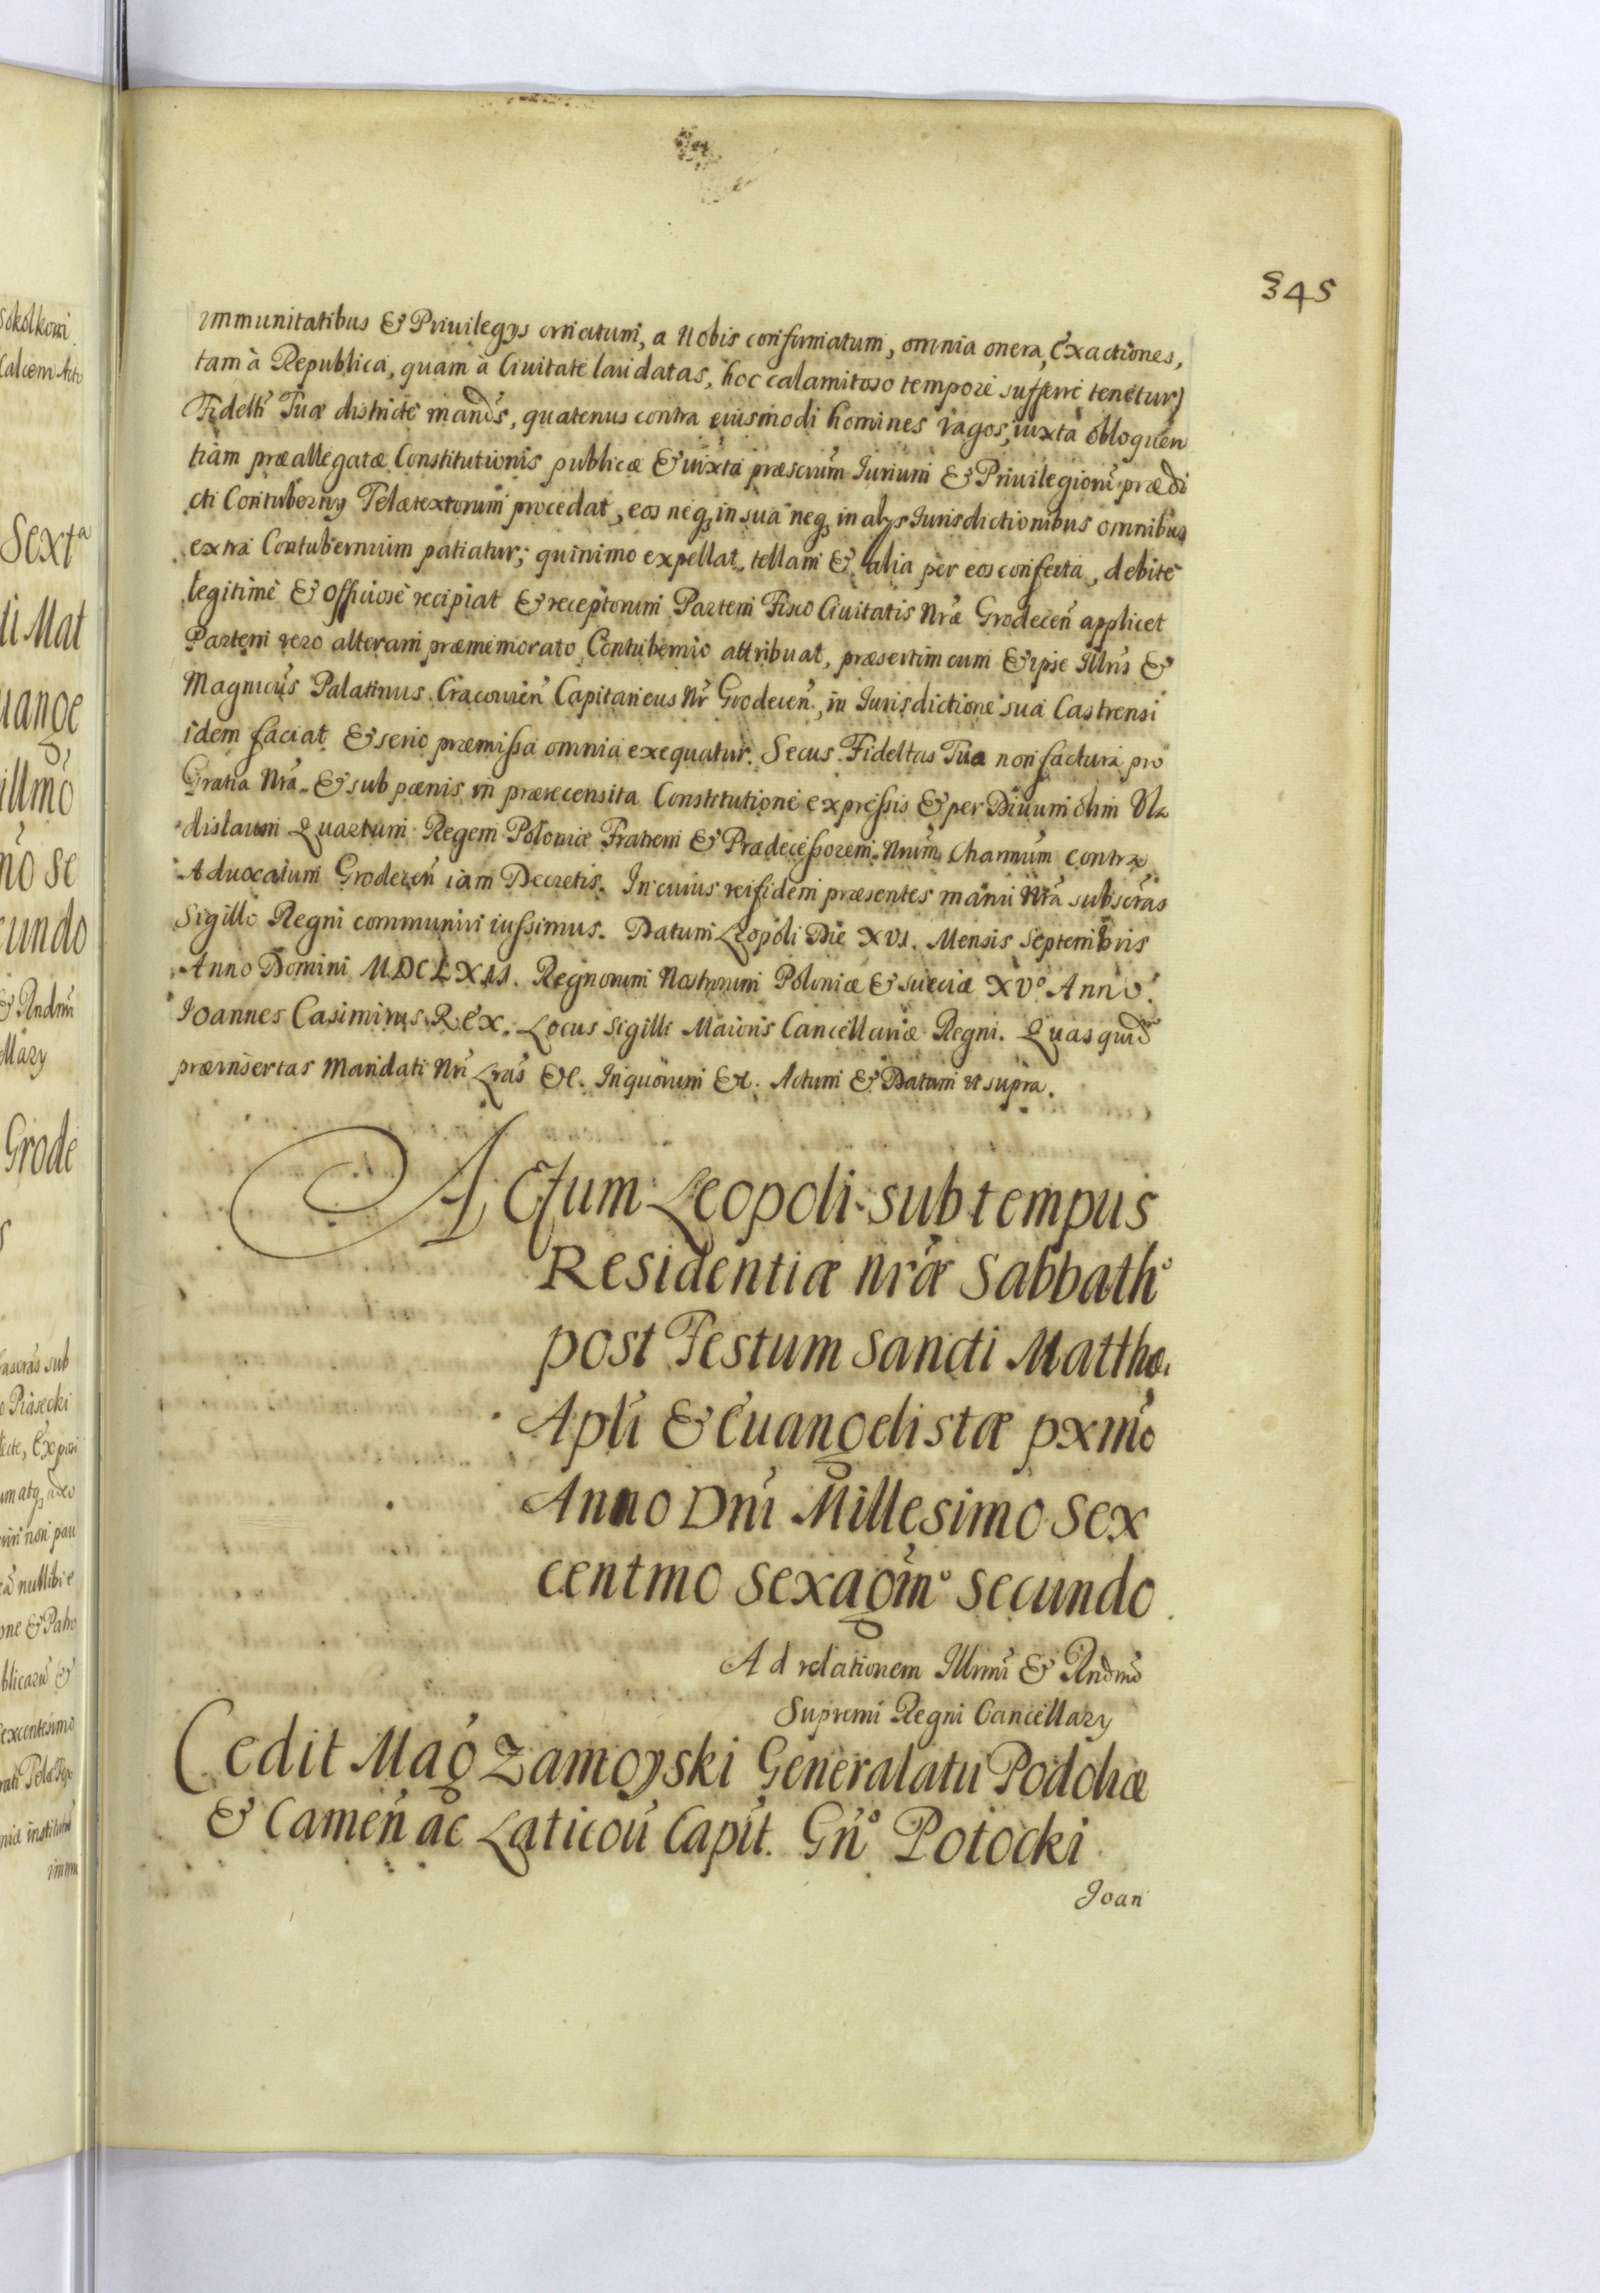 345
immunitatibus & Priuilegys ornatum, a Nobis confirmatum, omnia onera, Exactiones,
tam à Republica, quam à Ciuitate laudatas, hoc calamitoso tempore sufferre tenetur)
Fidelti Tuæ districtè mands, quatenus contra eiusmodi homines vagos, iuxta obloquen
tiam præallegatæ Constitutionis publicæ & iuxta præscrium Iurium & Priuilegioru prædi
cti Contuberny Telætextorum procedat, eos neq, in sua neq, in alys Iurisdictionibus omnibus
extra Contubernium patiatur; quinimo expellat, tellam & alia per eos confecta, debitè
legitimè & officiosè recipiat & receptorum Partem Fisco Ciuitatis Nræ Grodecen applicet
Partem vero alteram præmemorato Contubernio attribuat, præsertim cum & ipse Illris &
Magnicus Palatinus Cracouien Capitaneus Nr Grodecen, in Iurisdictione sua Castrensi
idem faciat & serio præmissa omnia exequatur. Secus Fideltas Tua non factura pro
Gratia Nra & sub pænis in præecensita Constitutione expressis & per Diuum olim Vla
dislaum Quartum Regem Poloniæ Fratrem & Prædecessorem Nrum Charmum contra
Aduocatum Grodecen iam Decretis. In cuius rei fidem præsentes manu Nra subscras
Sigillo Regni communiri iussimus. Datum Leopoli Die XVI. Mensis Septembris
Anno Domini MDCLXII. Regnorum Nostrorum Poloniæ & Sueciæ XVº Anno.
Ioannes Casimirus Rex. Locus Sigilli Maioris Cancellariæ Regni. Quas quid
præinsertas Mandati Nri Lras &c. In quorum &c. Actum & Datum ut supra.
Actum Leopoli sub tempus
Residentiæ Nræ Sabbathº
post Festum Sancti Matthæ
Apli & Euangelistæ pxmo
Anno Dni Millesimo Sex
centmo Sexagmº Secundo
Ad relationem Illrmi & Rndmi
Supremi Regni Cancellary
Cedit Mag Zamoyski Generalatu Podoliæ
& Camen ac Laticou Capit. Gnº Potocki
Ioan
Sokolkowi
calcem Acto
Sexta
di Mat
uange
illmo
mo se
cundo
& Rndmi
ellary
Grode
Piasecki
nullibi e
one & Patro